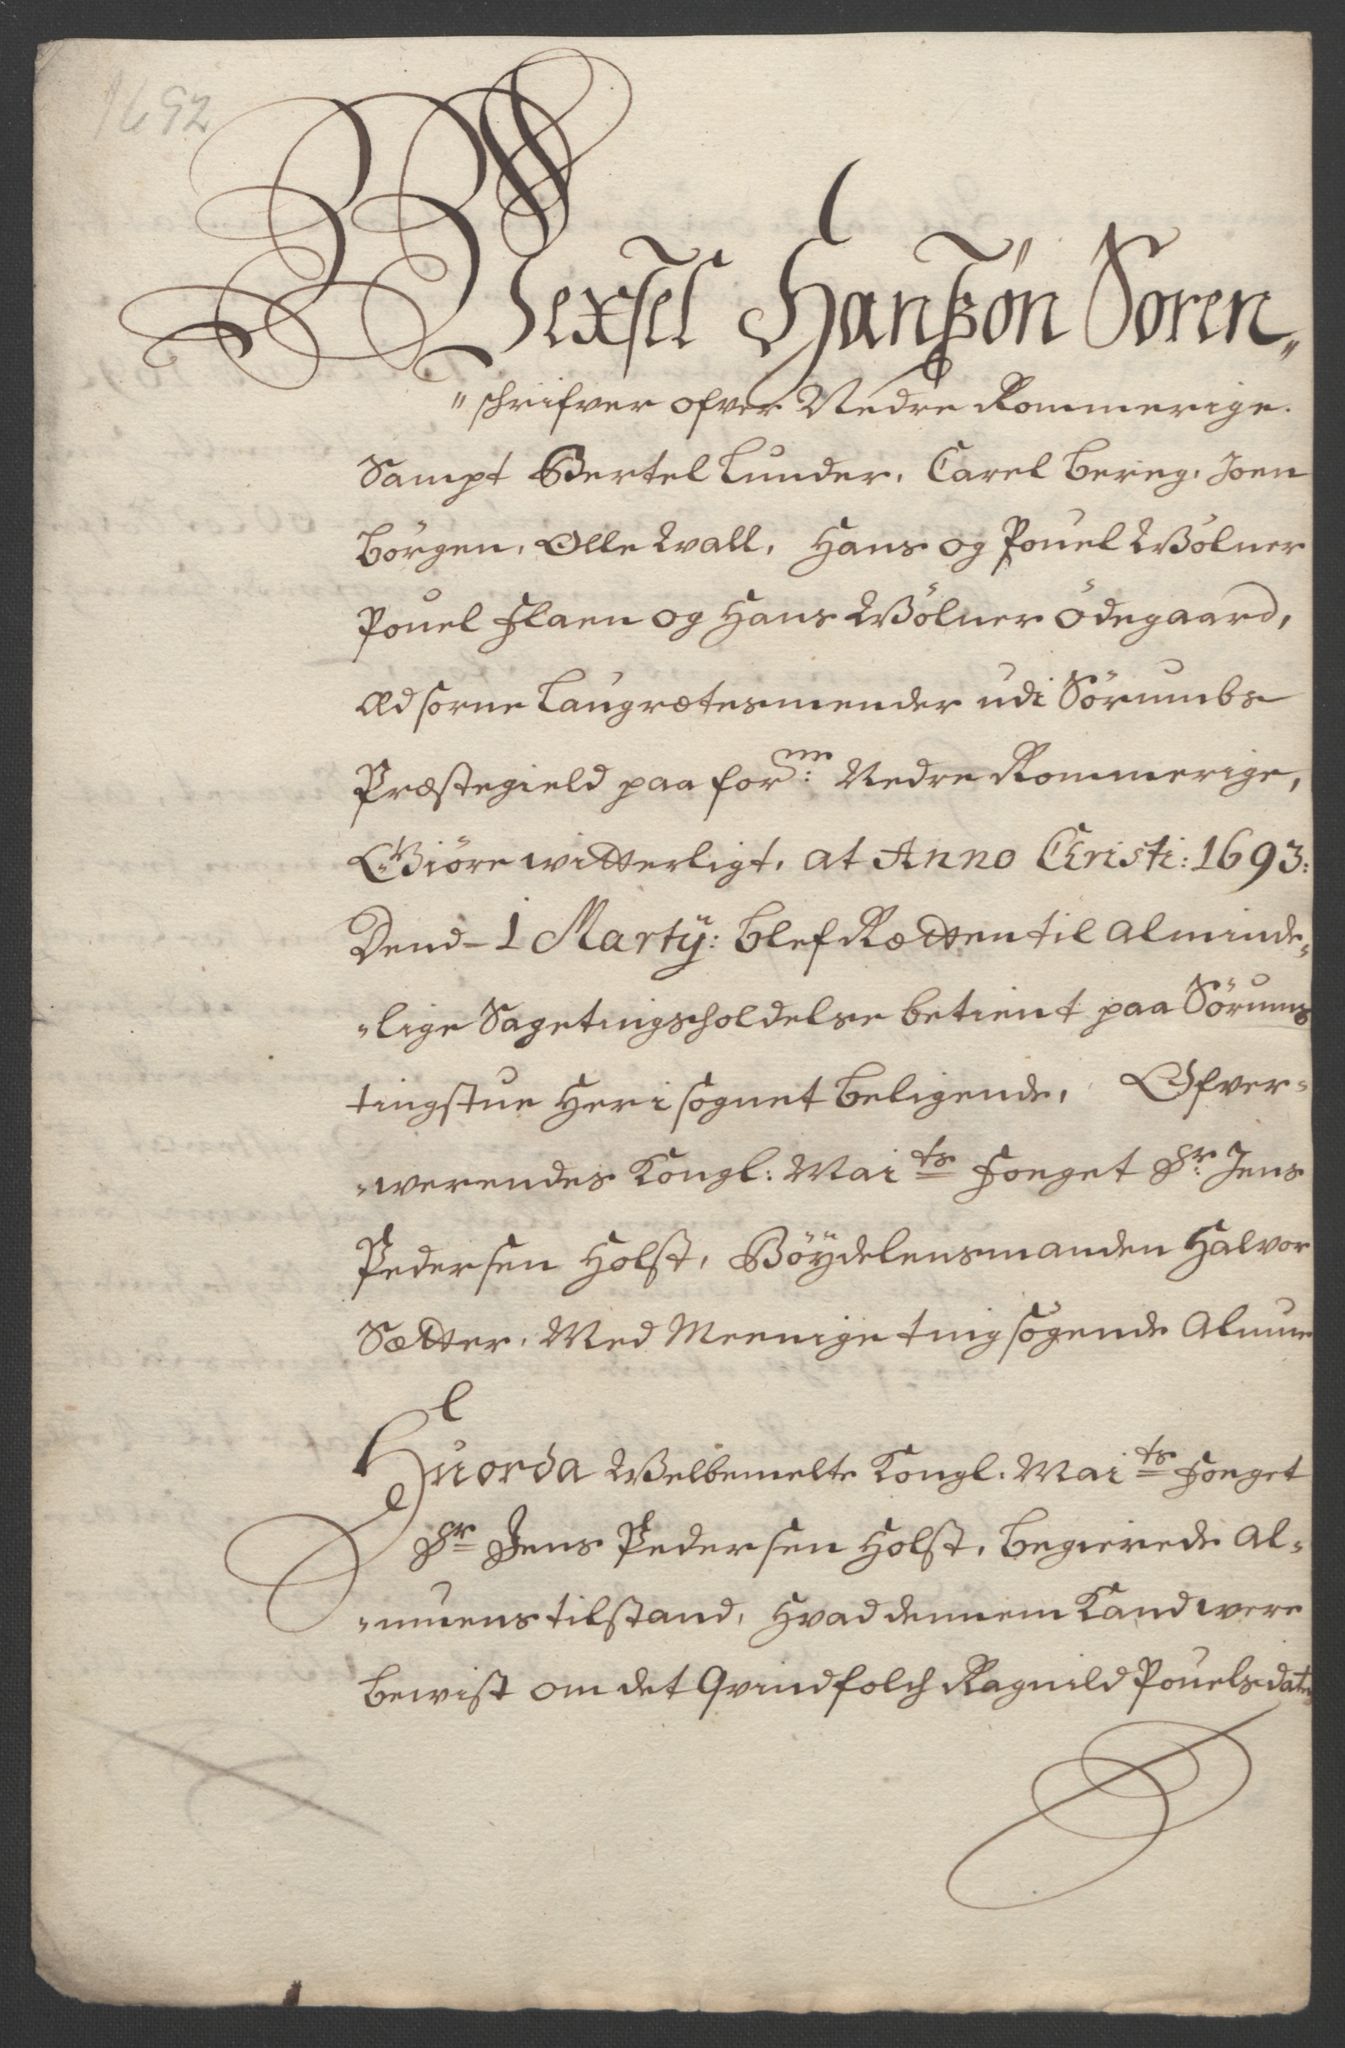 1692
Wexsel Hanßøn Soren„
„schrifver ofver Nedre Rommerige.
Sampt Bertel Lunder, Carel Bereg, Joen
Børgen, Olle Wall, Hans og Pouel Wølner
Pouel Flaen og Hans Wølner Ødegaard,
Ædsorne Laugrætesmender udi Sørumbs
Præstegield paa for:ne Nedre Rommerige,
Giøre witterligt, at Anno Christi: 1693:
Dend 1 Martÿ: blef Rætten til Alminde„
„lige Sagetingsholdelse betient paa Sørums
tingstue her i sognet beligende, Ofver„
„werendes Kongl: Maits Foeget Sr: Jens
Pedersen Holst, Bøÿdelensmanden Halvor
Sætter, Med Meenige tingsøgende Almue
Huorda Welbemelte Kongl. Maits Foeget
Sr Jens Pedersen Holst, begierede Al„
„muens tilstand, hvad dennem kand were
bewist om det Qvindfolch Ragnild Pouelsdater